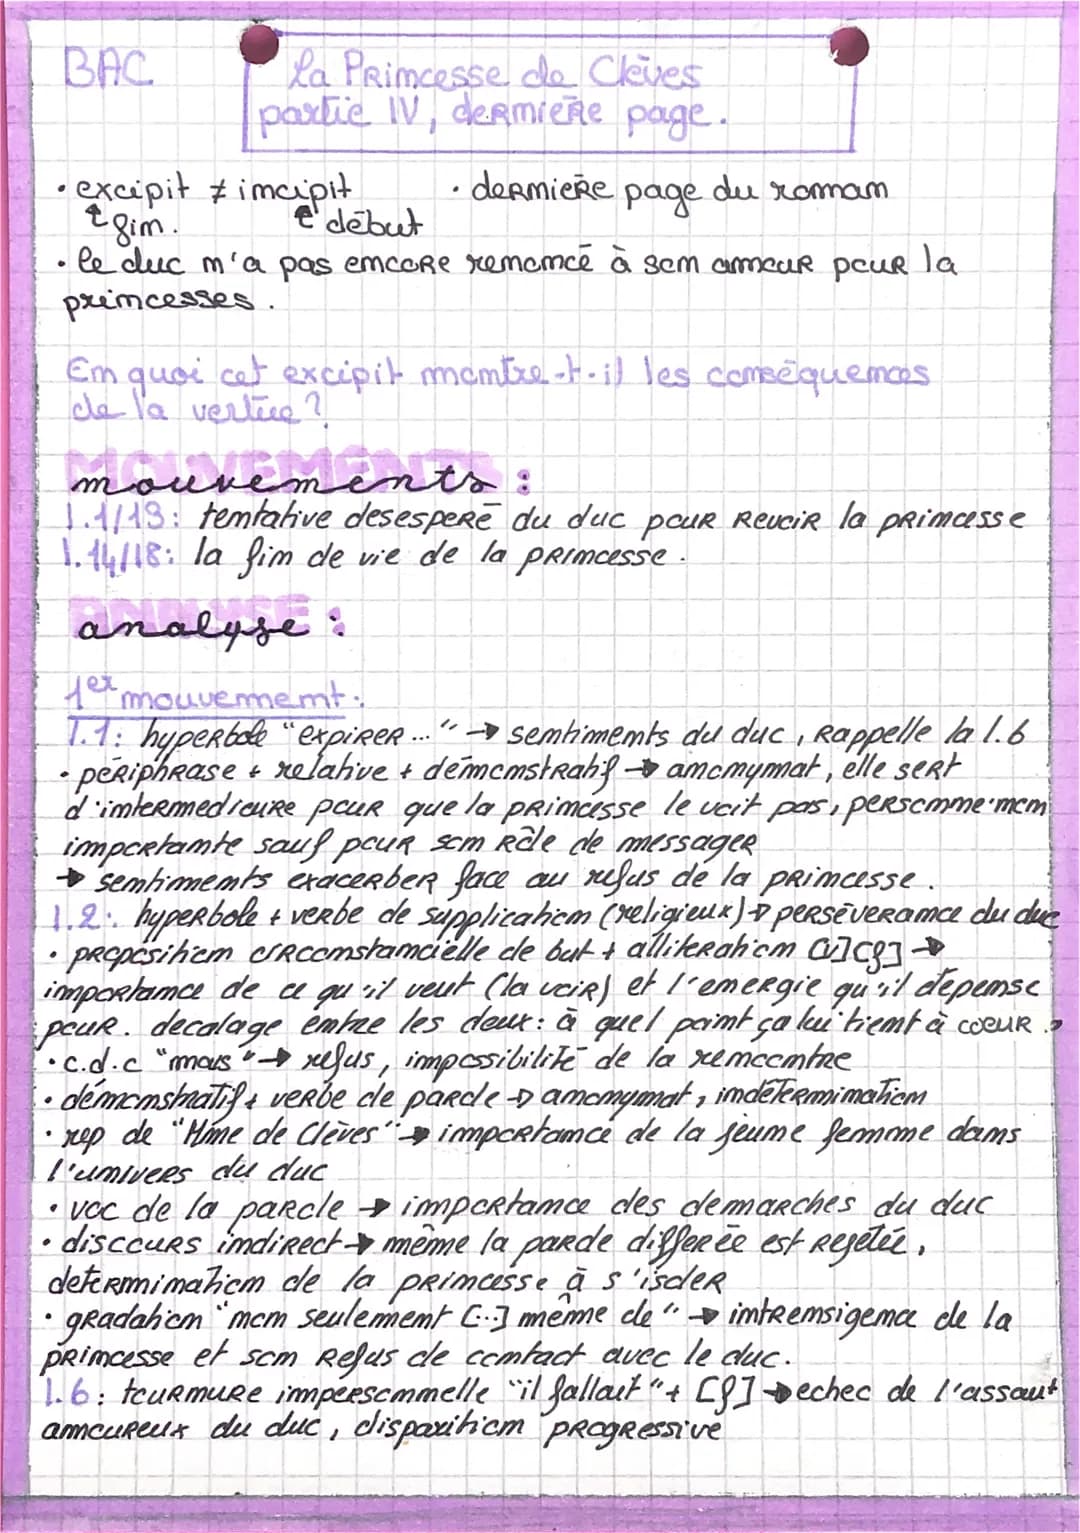 BAC
La Princesse de Clèves
partie IV, dernière page.
• excipit ≠ incipit • dernière page du roman
fin. début
• le duc n'a pas encore renoncé à son amour pour la
princesses.
En quoi cet excipit montre-t-il les conséquences
de la vertue ?
MOUVEMENTS
mouvements :
l.1/13: tentative desesperé du duc pour revoir la princesse
l.14/18: la fin de vie de la princesse.
ANALYSE :
analyse :
1er mouvement :
l.1: hyperbole "expirer..." → sentiments du duc, rappelle la l.6
• périphrase + relative + démonstratif → anonymat, elle sert
d'intermediaire pour que la princesse le voit pas, personne non
importante sauf pour son rôle de messager
→ sentiments exacerber face au refus de la princesse.
l.2: hyperbole + verbe de supplication (religieux) → persévérance du duc
• proposition circonstancielle de but + alliteration [v] [f] →
importance de ce qu'il veut (la voir) et l'energie qu'il dépense
pour. decalage entre les deux: à quel point ça lui tient à coeur.
• c.d.c "mais" → refus, impossibilité de la rencontre
• démonstratif + verbe de parole → anonymat, indétermination
• rep de "Mme de Clèves" → importance de la jeune femme dans
l'univers du duc
• voc de la parole → importance des demarches du duc
• discours indirect → même la parole differée est rejetée,
determination de la princesse à s'isoler
• gradation "non seulement [...] même de" → intrensigence de la
princesse et son refus de contact avec le duc.
l.6: tournure impersonnelle "il fallait" + [f] → echec de l'assaut
amoureux du duc, disparition progressive